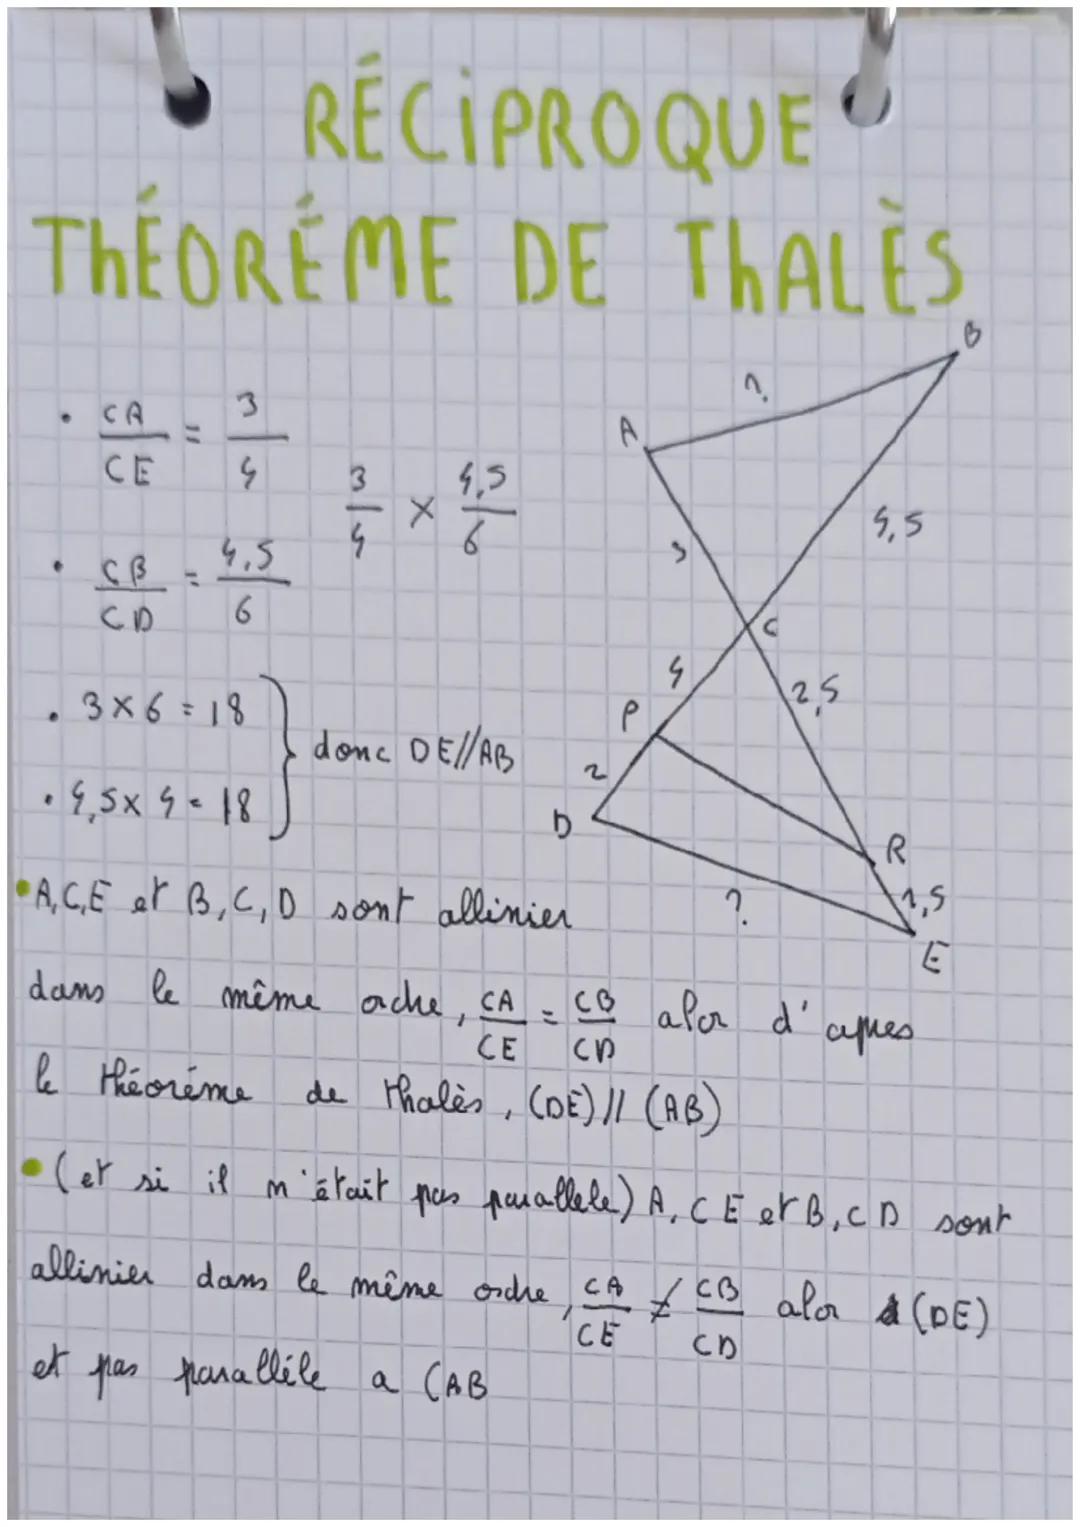 RÉCIPROQUE
THÉORÉME DE THALÈS
• CA/CE = 3/4
3/4 × 4,5/6
• CB/CD = 4,5/6
• 3×6 = 18
• 4,5×4 = 18
donc DE//AB
B
?
A
4,5
3
C
4
2,5
P
2
D
R
?
1,5
E
• A,C,E et B,C,D sont allinier
dans le même ordre, CA/CE = CB/CD alor d'apres
le théoréme de thalès, (DE) // (AB)
• (et si il n'était pas parallele) A, C E et B, C D sont
allinier dans le même ordre, CA/CE ≠ CB/CD alor (DE)
et pas paralléle a (AB